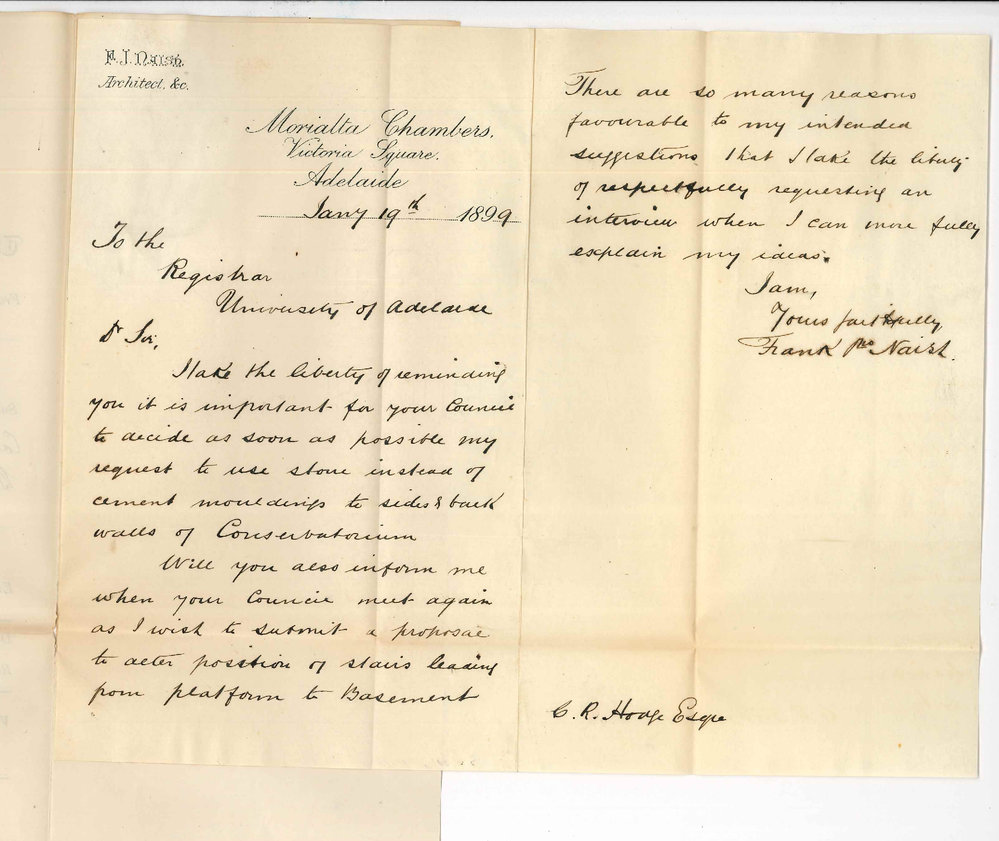 F. J. Naish.
Architect, &c.
Morialta Chambers,
Victoria Square.
Adelaide
Jany 19th 1899
To the
Registrar
University of Adelaide
Dr Sir,
I take the liberty of reminding
you it is important for your Council
to decide as soon as possible my
request to use stone instead of
cement mouldings to sides & back
walls of Conservatorium
Will you also inform me
when your Council meet again
as I wish to submit a proposal
to alter position of stairs leading
from platform to Basement
There are so many reasons
favourable to my intended
suggestions that I take the liberty
of respectfully requesting an
interview when I can more fully
explain my ideas.
I am,
Yours faithfully
Frank Jno Naish.
C. R. Hodge Esqre